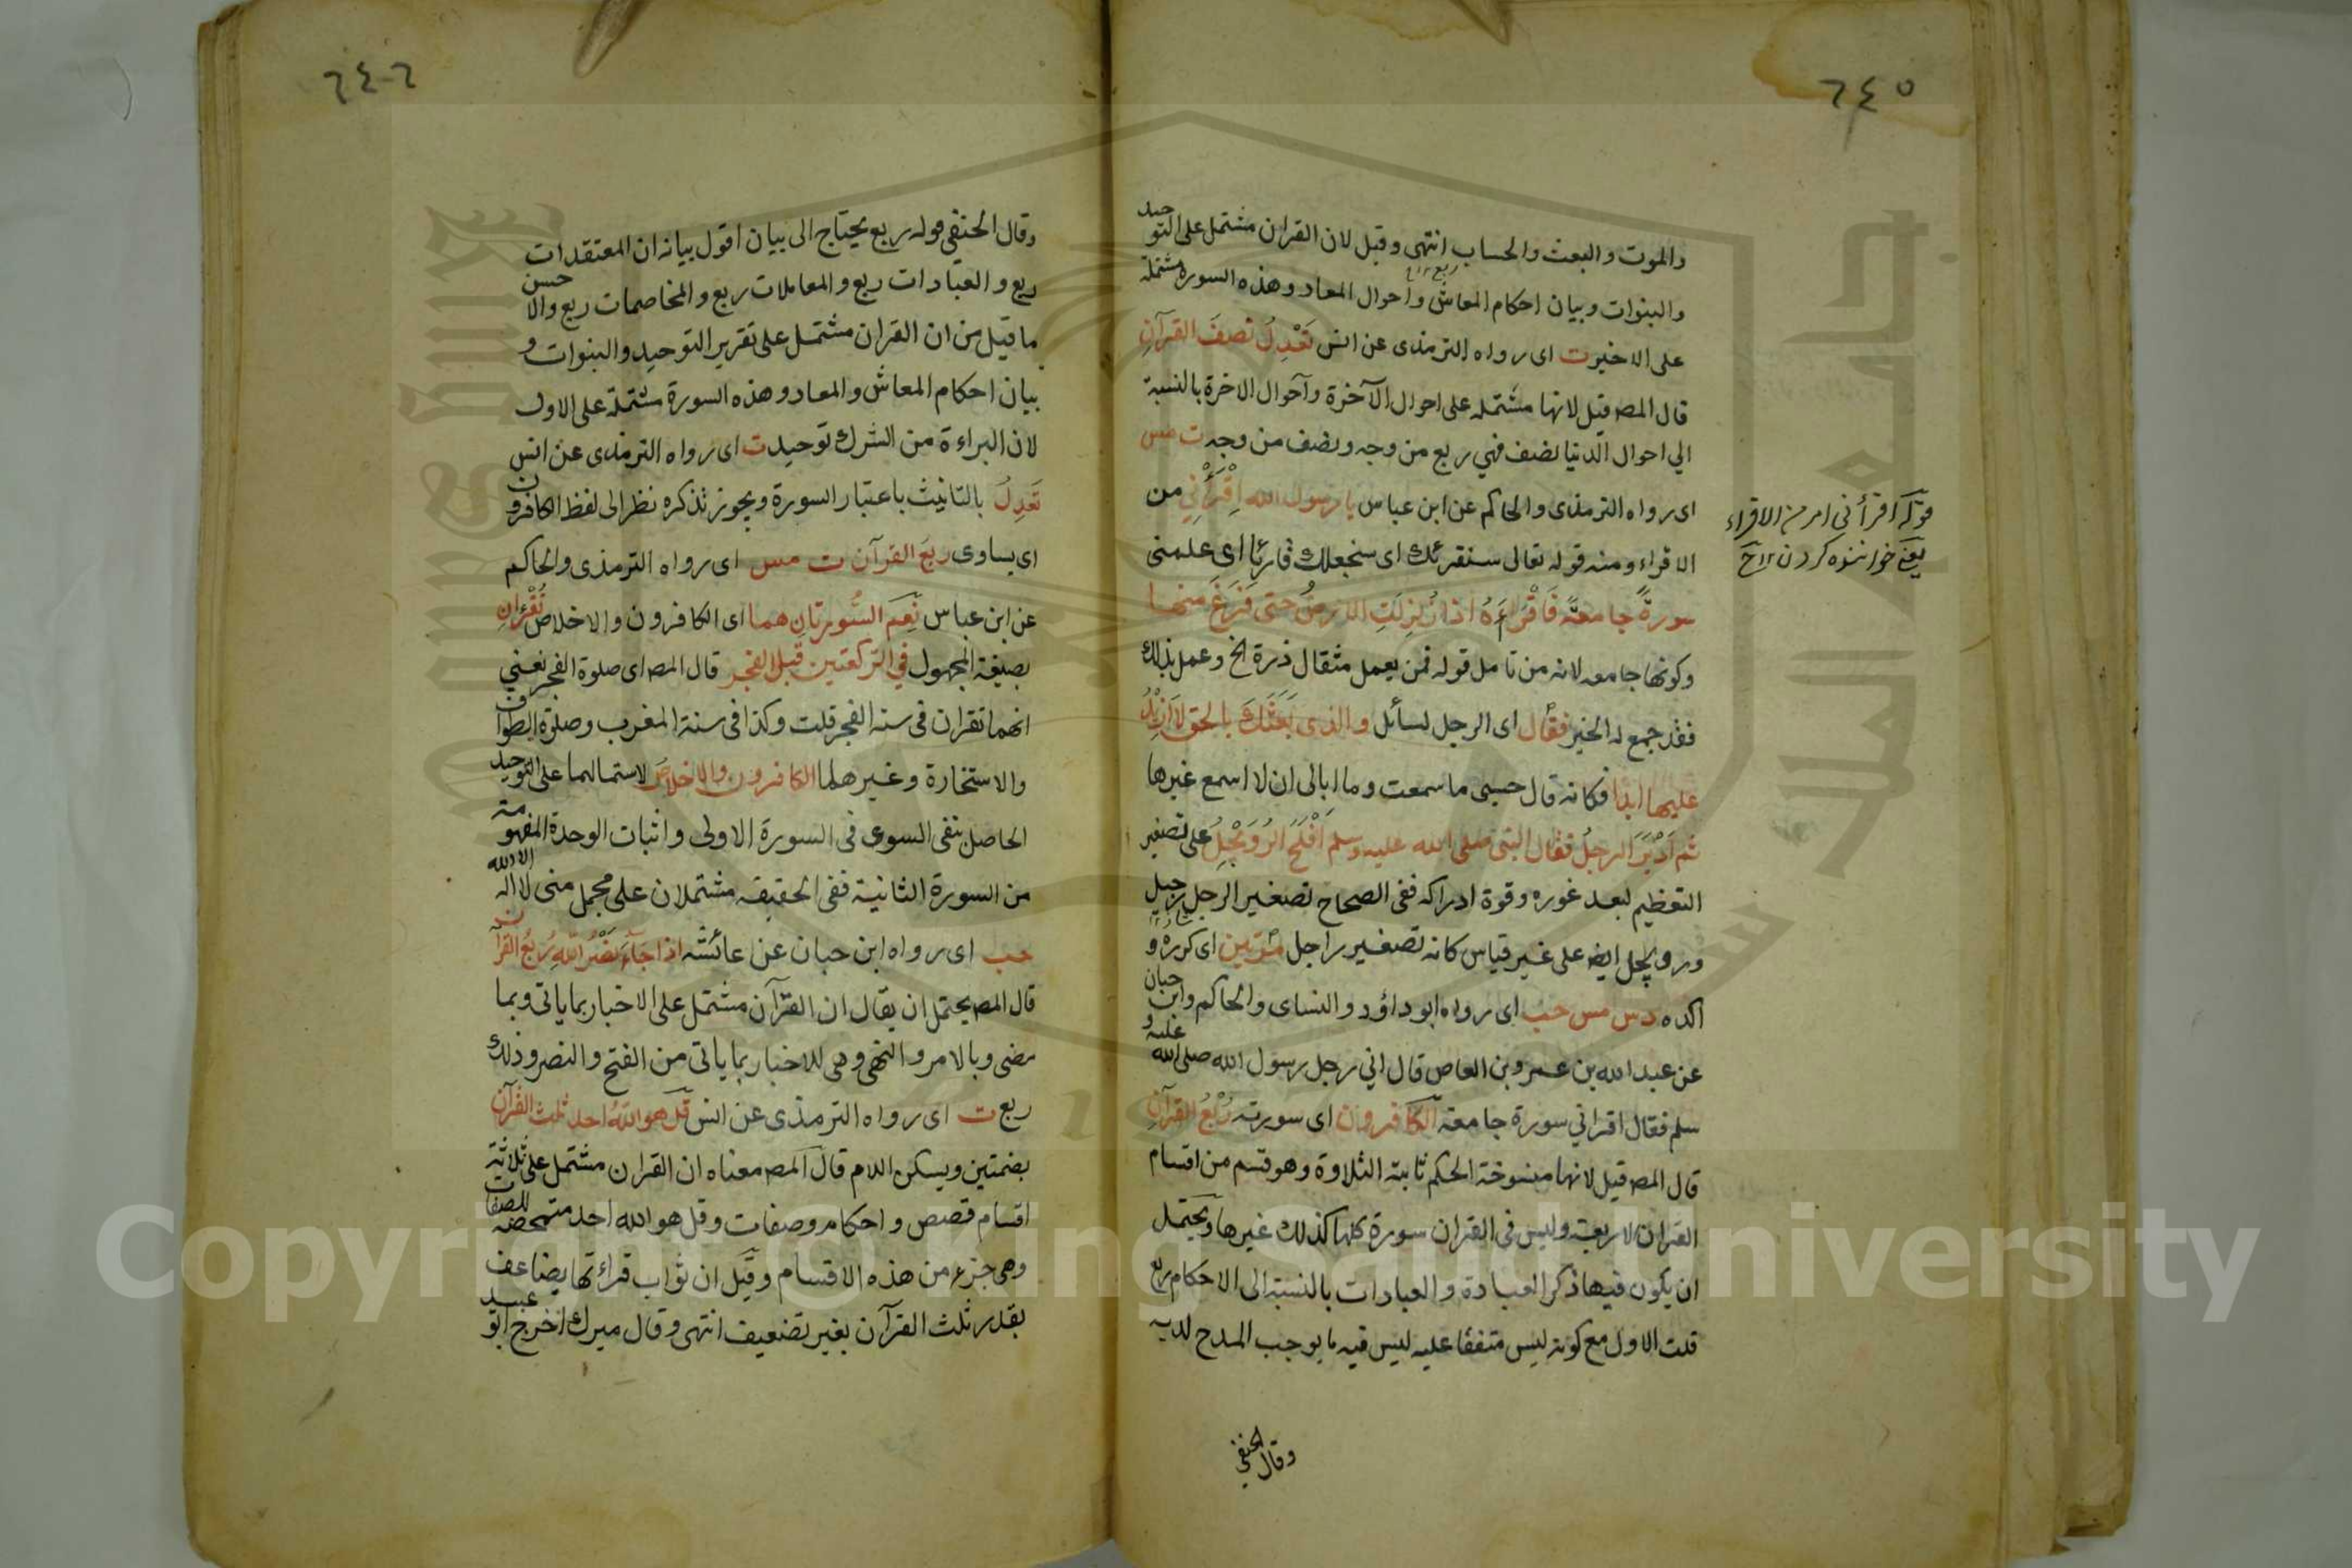 ٦٤٥
والموت والبعث والحساب انتهى وقيل لان القران مشتمل على التوحيد
والنبوات وبيان احكام المعاش واحوال المعاد وهذه السورة مشتملة
على الاخير ت اى رواه الترمذى عن انس تَعْدِلُ نصفَ القرآنِ
قال المص قيل لانها مشتملة على احوال الآخرة وآحوال الاخرة بالنسبة
الي احوال الدنيا نصف فهي ربع من وجه ونصف من وجه ت مس
اى رواه الترمذى والحاكم عن ابن عباس يا رسول الله اِقْرَأْنِي من
الاقراء ومنه قوله تعالى سنقرئك اى سنجعلك قارئا اى علمنى
سورةً جامعةً فَاَقْرَاَءَهُ اذا زُلزِلَتِ الارضُ حتى فَرَغَ منها
وكونها جامعه لانه من تامل قوله فمن يعمل مثقال ذرة الخ وعمل بذلك
فقد جمع له الخير فقال اى الرجل لسائل والذى بَعَثَكَ بالحق لا اَزِيْدُ
عليها ابدًا فكانه قال حسبى ما سمعت وما ابالى ان لا اسمع غيرها
ثم اَدْبَرَ الرجلُ فقال النبى صلى الله عليه وسلم اَفْلَحَ الرُوَيْجِلُ على تصغير
التعظيم لبعد غوره وقوة ادراكه ففى الصحاح تصغير الرجل رجيل
ورويجل ايض على غير قياس كانه تصغير راجل مرّتين اى كرره و
اكده د س مس حب اى رواه ابو داؤد والنساى والحاكم وابن حبان
عن عبد الله بن عمرو بن العاص قال اتي رجل رسول الله صلى الله عليه و
سلم فقال اقراني سورة جامعة الكافرون اى سورته رُبْعُ القرآنِ
قال المص قيل لانها منسوخة الحكم ثابتة التلاوة وهو قسم من اقسام
القران الاربعة وليس فى القران سورة كلها كذلك غيرها ويحتمل
ان يكون فيها ذكر العبادة والعبادات بالنسبة الى الاحكام ربع
قلت الاول مع كونه ليس متفقا عليه ليس فيه ما يوجب المدح لديه
وقال الحنفي
قوله اقرأنى امر من الاقراء
يعني خواننده كردن
٦٤٦
وقال الحنفي قوله ربع يحتاج الى بيان اقول بيانه ان المعتقدات
ربع والعبادات ربع والمعاملات ربع والمخاصمات ربع والاحسن
ما قيل من ان القران مشتمل على تقرير التوحيد والنبوات و
بيان احكام المعاش والمعاد وهذه السورة مشتملة على الاول
لان البراءة من الشرك توحيد ت اى رواه الترمذى عن انس
تَعدِلُ بالتانيث باعتبار السورة ويجوز تذكره نظر الى لفظ الكافرون
اى يساوى ربعَ القرآن ت مس اى رواه الترمذى والحاكم
عن ابن عباس نِعمَ السُّورتانِ هما اى الكافرون والاخلاص تُقْرَءانِ
بصيغة المجهول في الركعتين قبل الفجر قال المص اى صلوة الفجر يعني
انهما تقران فى سنة الفجر قلت وكذا فى سنة المغرب وصلوة الطواف
والاستخارة وغير هلما الكافرون والاخلاص لاستمالهما على التوحيد
الحاصل بنفى السوى فى السورة الاولى واثبات الوحدة المفهومة
من السورة الثانية ففى الحقيقة مشتملان على مجمل منى لا اله الا الله
حب اى رواه ابن حبان عن عائشه اذا جآءَ نَصْرُ اللهِ رُبعُ القرآن
قال المص يحتمل ان يقال ان القرآن مشتمل على الاخبار بما ياتى وبما
مضى وبالامر والنهى وهى للاخبار بما ياتى من الفتح والنصر وذلك
ربع ت اى رواه الترمذى عن انس قل هو اللهُ احد ثلث القرآنِ
بضمتين ويسكن اللام قال المص معناه ان القران مشتمل على ثلاثة
اقسام قصص واحكام وصفات وقل هو الله احد متمحضة للصفات
وهى جزء من هذه الاقسام وقيل ان ثواب قراءتها يضاعف
بقدر ثلث القرآن بغير تضعيف انتهى وقال ميرك اخرج ابو عبيد
Copyright © King Saud University